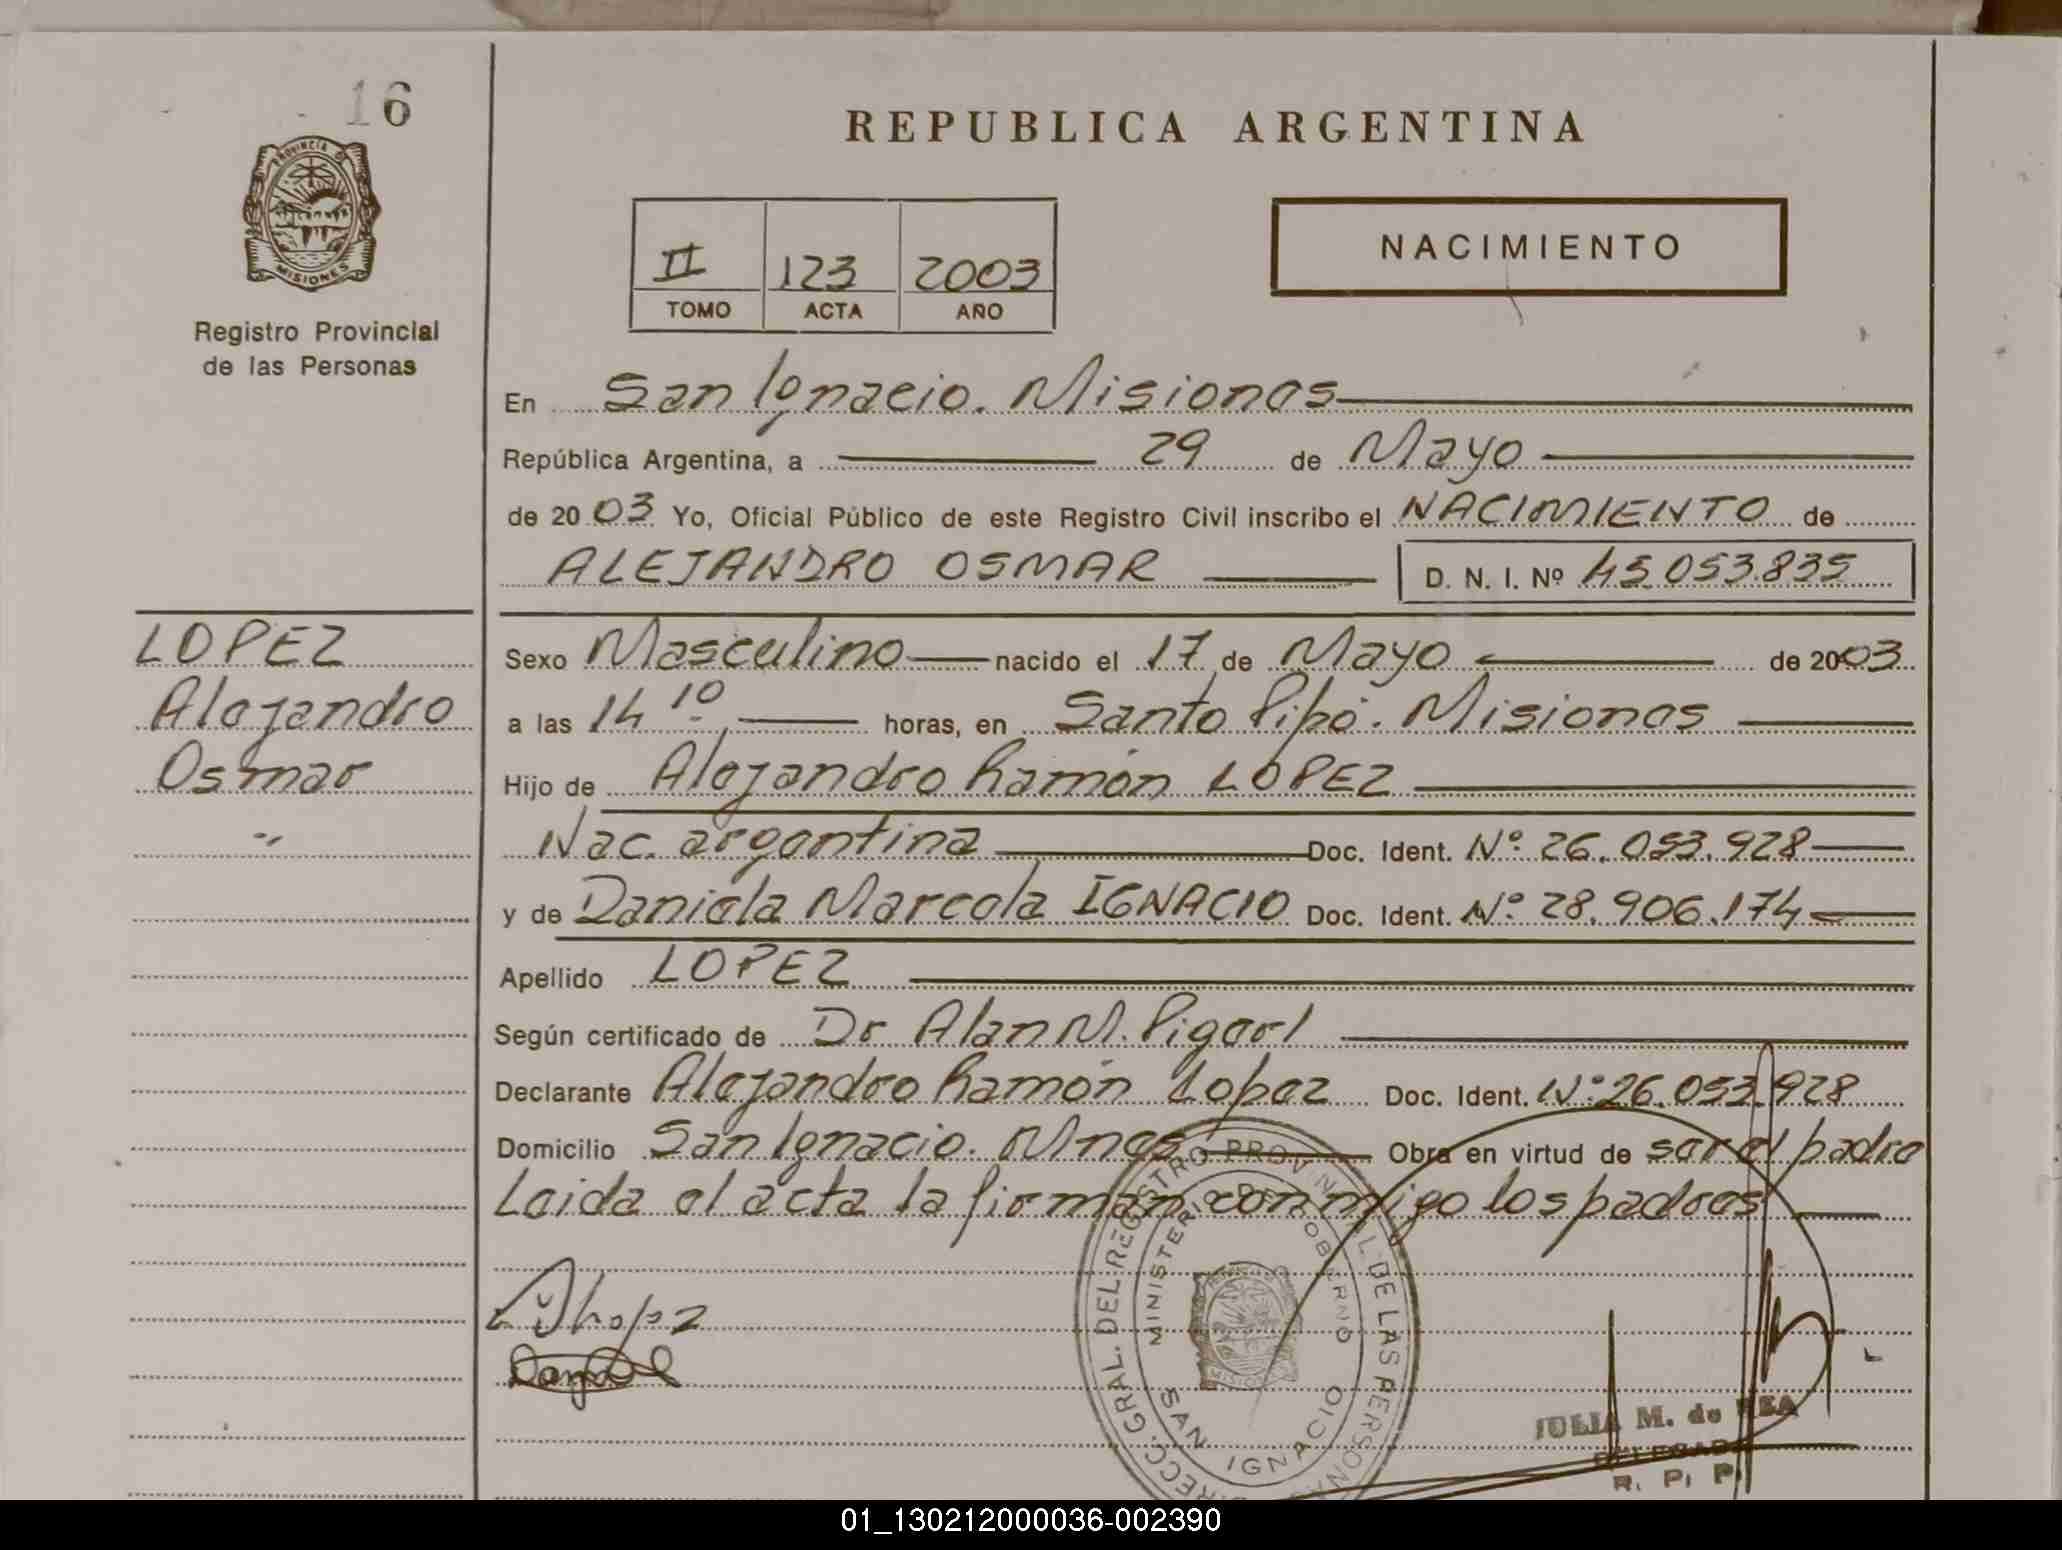 16
REPUBLICA ARGENTINA
PROVINCIA DE
MISIONES
Registro Provincial
de las Personas
II 123 2003
TOMO ACTA AÑO
NACIMIENTO
En San Ignacio. Misiones
República Argentina, a 29 de Mayo
de 2003 Yo, Oficial Público de este Registro Civil inscribo el NACIMIENTO de
ALEJANDRO OSMAR D. N. I. Nº 45.053.835
LOPEZ
Alejandro
Osmar
Sexo Masculino nacido el 17 de Mayo de 2003
a las 14 10 horas, en Santo Pipó. Misiones
Hijo de Alejandro Ramón LOPEZ
Nac. argentina Doc. Ident. Nº 26.053.928
y de Daniela Marcela IGNACIO Doc. Ident. Nº 28.906.174
Apellido LOPEZ
Según certificado de Dr Alan M.
Declarante Alejandro Ramón Lopez Doc. Ident. Nº 26.053.928
Domicilio San Ignacio. Mnes Obra en virtud de ser el padre
Leida el acta la firman conmigo los padres
DIRECC. GRAL. DEL REGISTRO PROVINCIAL DE LAS PERSONAS
MINISTERIO DE GOBIERNO
SAN IGNACIO
JULIA M. de REA
DELEGADA
R. P. P.
01_130212000036-002390